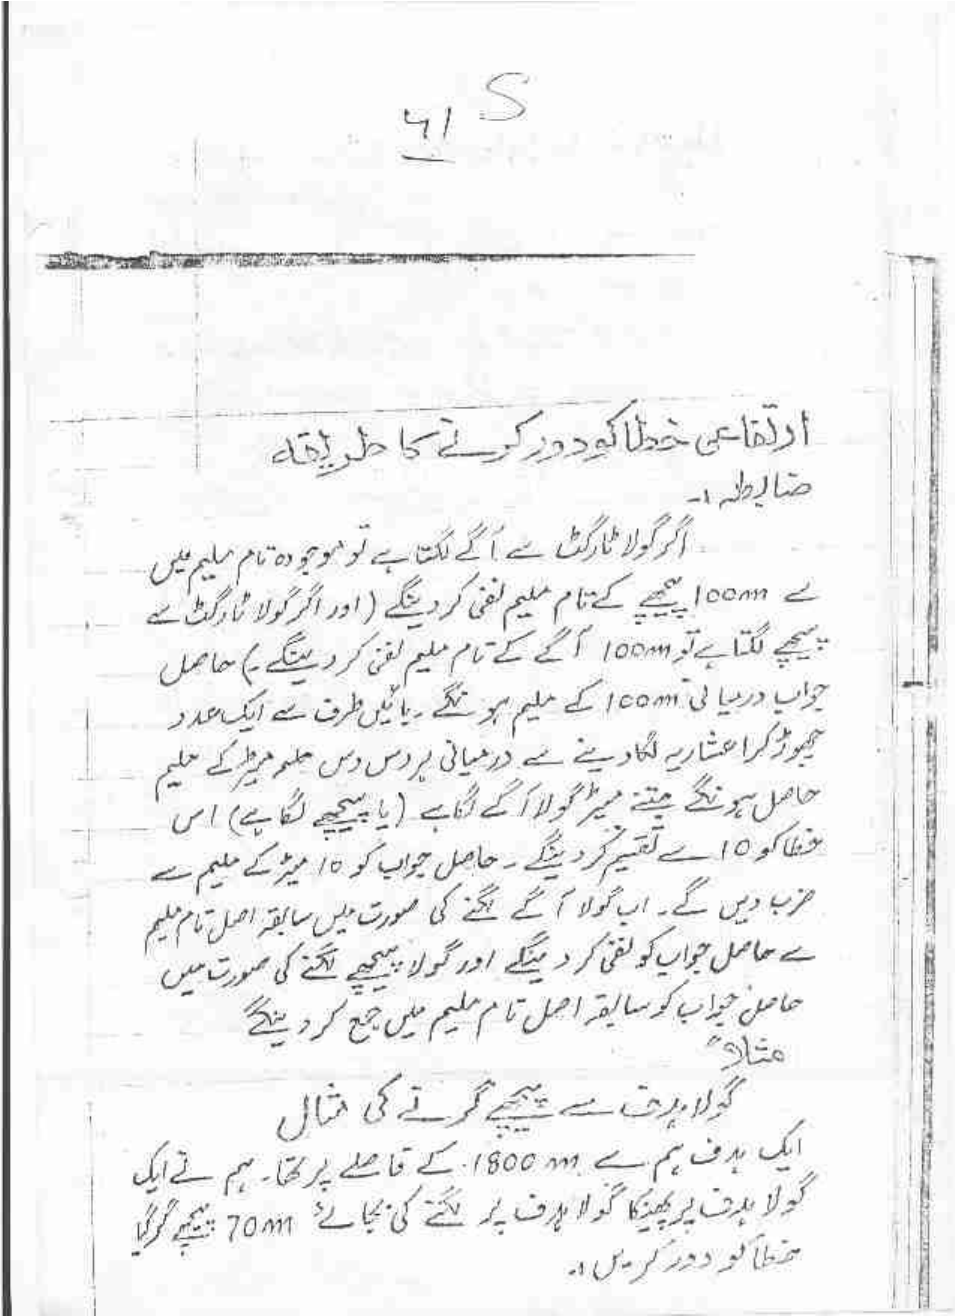 S
41
ارتفاعی خطا کو دور کرنے کا طریقہ
ضابطہ :-
اگر گولا ٹارگٹ سے آگے لگتا ہے تو موجودہ تام ملیم میں
سے 100m پیچھے کے تام ملیم نفی کر دینگے (اور اگر گولا ٹارگٹ سے
پیچھے لگتا ہے تو 100m آگے کے تام ملیم نفی کر دینگے۔) حاصل
جواب درمیانی 100m کے ملیم ہونگے۔ بائیں طرف سے ایک عدد
چھوڑ کر اعشاریہ لگا دینے سے درمیانی ہر دس دس میٹر کے ملیم
حاصل ہونگے جتنے میٹر گولا آگے لگا ہے (یا پیچھے لگا ہے) اس
خطا کو 10 سے تقسیم کر دینگے۔ حاصل جواب کو 10 میٹر کے ملیم سے
ضرب دیں گے۔ اب گولا آگے لگنے کی صورت میں سابقہ اصل تام ملیم
سے حاصل جواب کو نفی کر دینگے اور گولا پیچھے لگنے کی صورت میں
حاصل جواب کو سابقہ اصل تام ملیم میں جمع کر دینگے
مثلاً
گولا ہدف سے پیچھے گرنے کی مثال
ایک ہدف ہم سے 1800m کے فاصلے پر تھا۔ ہم نے ایک
گولا ہدف پر پھینکا گولا ہدف پر لگنے کی بجائے 70m پیچھے گر گیا
خطا کو دور کریں :-